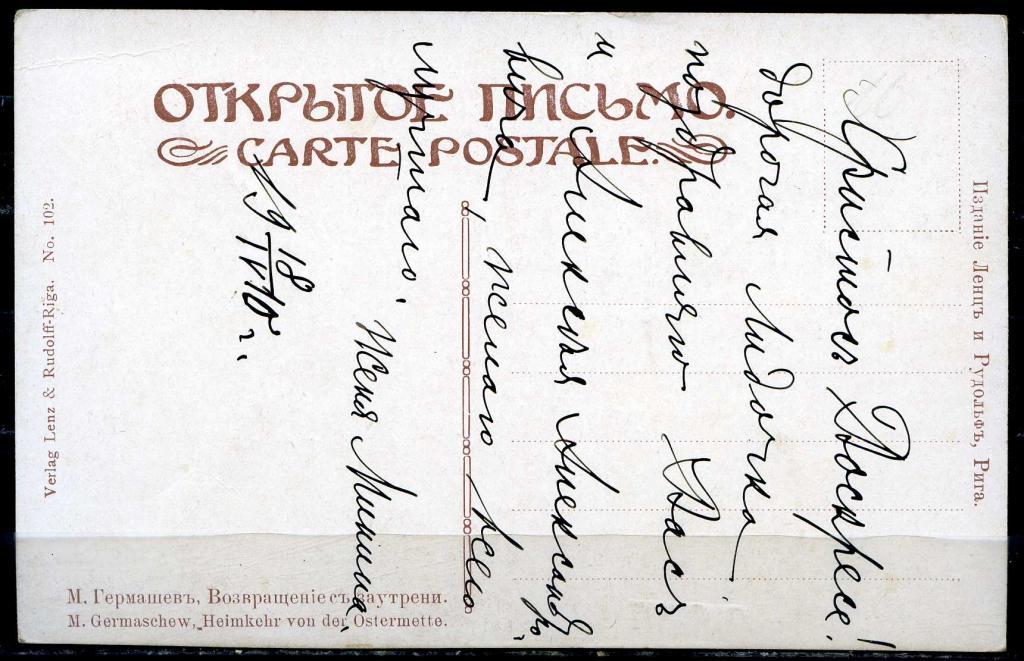 ОТКРЫТОЕ ПИСЬМО.
CARTE POSTALE.
Христосъ Воскресе!
дорогая Лидочка
поздравляю Васъ
и Алексѣя Александро-
вича, желаю всего
лучшаго.
Женя Минина.
19 18/IV 10 г.
Изданіе Ленцъ и Рудольфъ, Рига.
Verlag Lenz & Rudolff-Riga. No. 102.
М. Гермашевъ, Возвращеніе съ заутрени.
M. Germaschew, Heimkehr von der Ostermette.